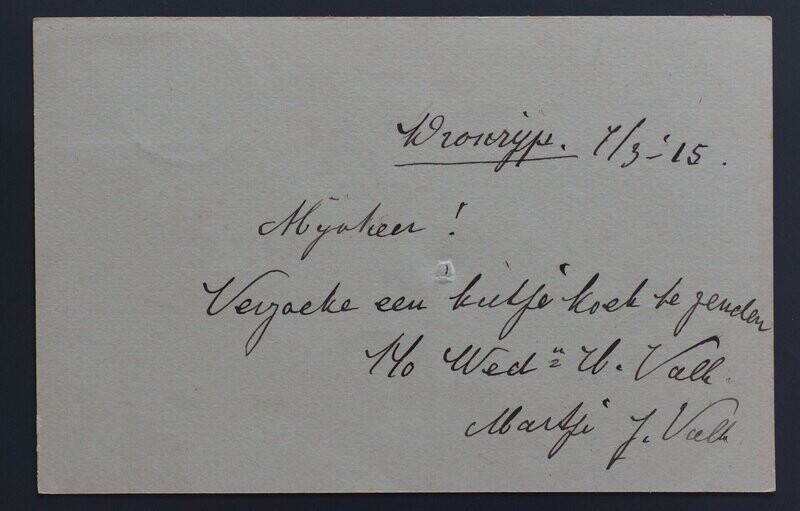 Dronrijp. 7/3-'15.
Mynheer!
Verzoeke een kistje koek te zenden
Wed. H. Valk.
Martje J. Valk